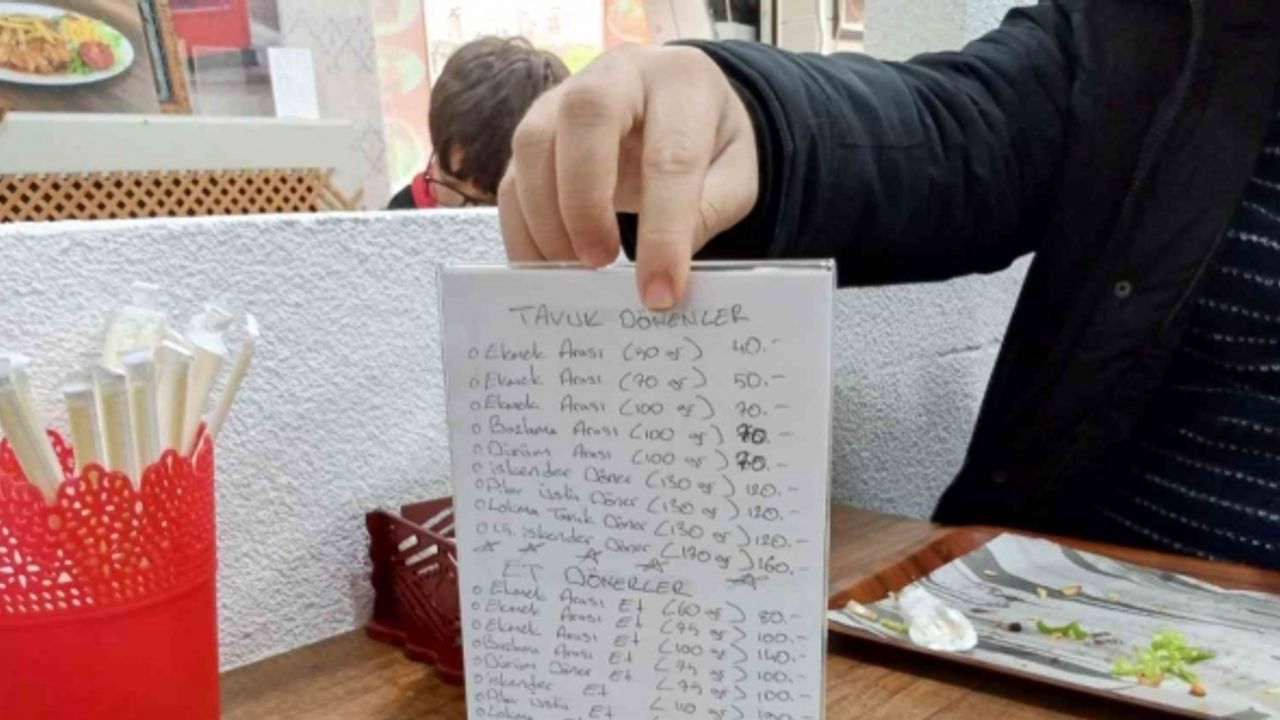 TAVUK DÖNERLER
o Ekmek Arası (50 gr) 40.-
o Ekmek Arası (70 gr) 50.-
o Ekmek Arası (100 gr) 70.-
o Bazlama Arası (100 gr) 70.-
o Dürüm Arası (100 gr) 75.-
o iskender Döner (130 gr) 120.-
o Pilav üstü Döner (130 gr) 120.-
o Lokma Tavuk Döner (130 gr) 120.-
o 1.5 iskender Döner (170 gr) 160.-
ET DÖNERLER
o Ekmek Arası Et (60 gr) 80.-
o Ekmek Arası Et (75 gr) 100.-
o Ekmek Arası Et (100 gr) 140.-
o Bazlama Arası Et (75 gr) 100.-
o Dürüm Döner Et (75 gr) 100.-
o iskender Et (110 gr)
o Pilav üstü Et
o Lokma